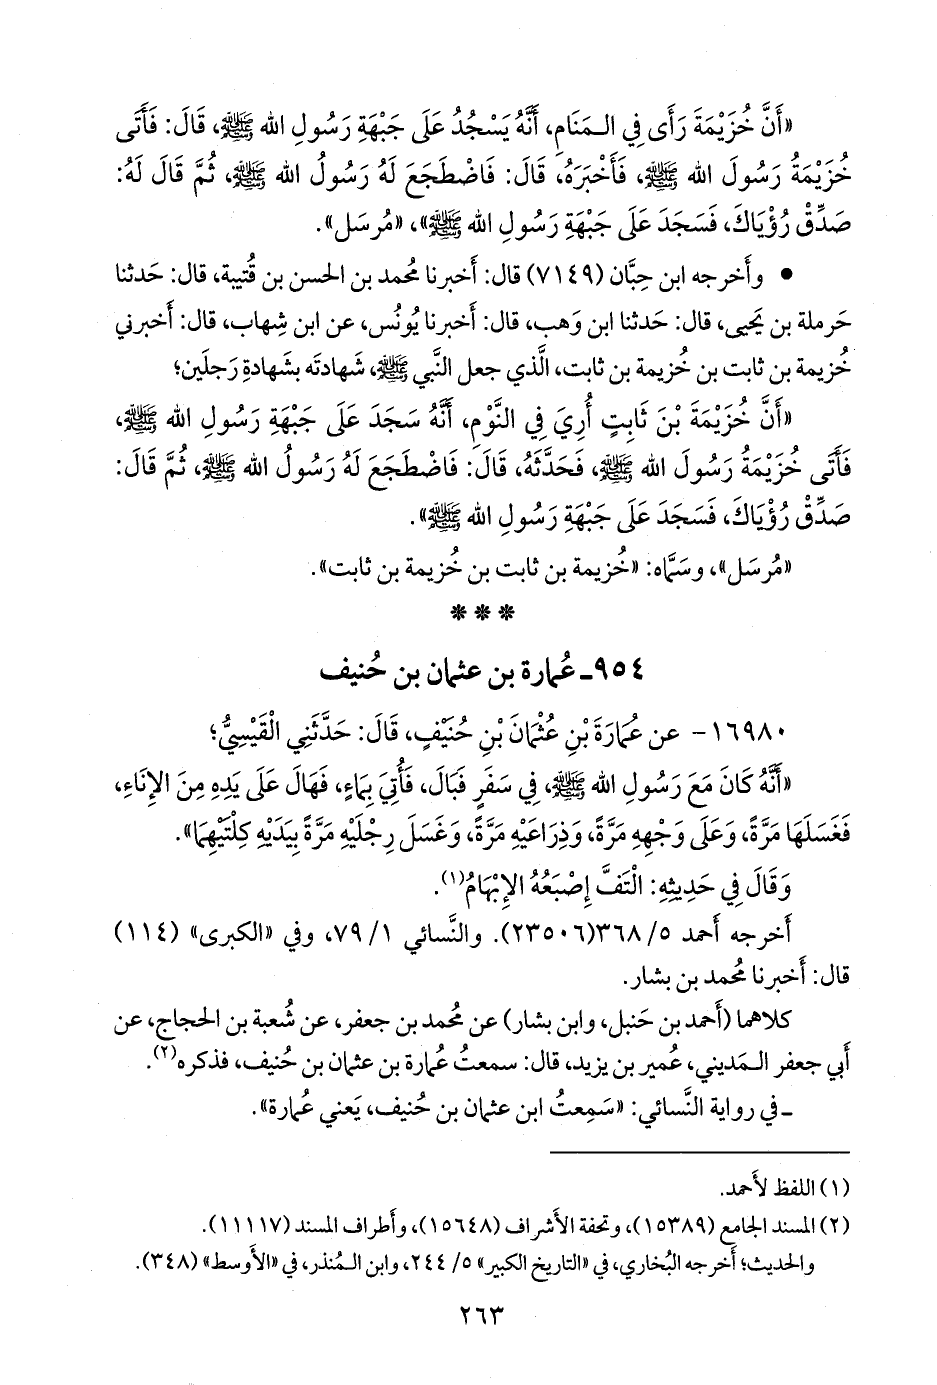 «أَنَّ خُزَيْمَةَ رَأَى فِي الـمَنَامِ، أَنَّهُ يَسْجُدُ عَلَى جَبْهَةِ رَسُولِ الله ﷺ، قَالَ: فَأَتَى
خُزَيْمَةُ رَسُولَ الله ﷺ، فَأَخْبَرَهُ، قَالَ: فَاضْطَجَعَ لَهُ رَسُولُ الله ﷺ، ثُمَّ قَالَ لَهُ:
صَدِّقْ رُؤْيَاكَ، فَسَجَدَ عَلَى جَبْهَةِ رَسُولِ الله ﷺ»، «مُرسَل».
• وأَخرجه ابن حِبَّان (٧١٤٩) قال: أَخبرنا مُحمد بن الحسن بن قُتيبة، قال: حَدثنا
حَرملة بن يَحيى، قال: حَدثنا ابن وَهب، قال: أَخبرنا يُونُس، عن ابن شِهاب، قال: أَخبرني
خُزيمة بن ثابت بن خُزيمة بن ثابت، الَّذي جعل النَّبي ﷺ، شَهادتَه بشَهادةِ رَجلَين؛
«أَنَّ خُزَيْمَةَ بْنَ ثَابِتٍ أُرِيَ فِي النَّوْمِ، أَنَّهُ سَجَدَ عَلَى جَبْهَةِ رَسُولِ الله ﷺ،
فَأَتَى خُزَيْمَةُ رَسُولَ الله ﷺ، فَحَدَّثَهُ، قَالَ: فَاضْطَجَعَ لَهُ رَسُولُ الله ﷺ، ثُمَّ قَالَ:
صَدِّقْ رُؤْيَاكَ، فَسَجَدَ عَلَى جَبْهَةِ رَسُولِ الله ﷺ».
«مُرسَل»، وسَمَّاه: «خُزيمة بن ثابت بن خُزيمة بن ثابت».
***
٩٥٤ـ عُمارة بن عثمان بن حُنيف
١٦٩٨٠- عن عُمَارَةَ بْنِ عُثْمَانَ بْنِ حُنَيْفٍ، قَالَ: حَدَّثَنِي الْقَيْسِيُّ؛
«أَنَّهُ كَانَ مَعَ رَسُولِ الله ﷺ، فِي سَفَرٍ فَبَالَ، فَأُتِيَ بِمَاءٍ، فَهَالَ عَلَى يَدِهِ مِنَ الإِنَاءِ،
فَغَسَلَهَا مَرَّةً، وَعَلَى وَجْهِهِ مَرَّةً، وَذِرَاعَيْهِ مَرَّةً، وَغَسَلَ رِجْلَيْهِ مَرَّةً بِيَدَيْهِ كِلْتَيْهِمَا».
وَقَالَ فِي حَدِيثِهِ: الْتَفَّ إِصْبَعُهُ الإِبْهَامُ(١).
أَخرجه أَحمد ٥/ ٣٦٨(٢٣٥٠٦). والنَّسائي ١/ ٧٩، وفي «الكبرى» (١١٤)
قال: أَخبرنا مُحمد بن بشار.
كلاهما (أَحمد بن حَنبل، وابن بشار) عن مُحمد بن جعفر، عن شُعبة بن الحجاج، عن
أَبي جعفر الـمَديني، عُمير بن يزيد، قال: سمعتُ عُمارة بن عثمان بن حُنيف، فذكره(٢).
ـ في رواية النَّسائي: «سَمِعتُ ابن عثمان بن حُنيف، يَعني عُمارة».
(١) اللفظ لأَحمد.
(٢) المسند الجامع (١٥٣٨٩)، وتحفة الأَشراف (١٥٦٤٨)، وأَطراف المسند (١١١١٧).
والحديث؛ أَخرجه البُخاري، في «التاريخ الكبير» ٥/ ٢٤٤، وابن الـمُنذر، في «الأَوسط» (٣٤٨).
٢٦٣